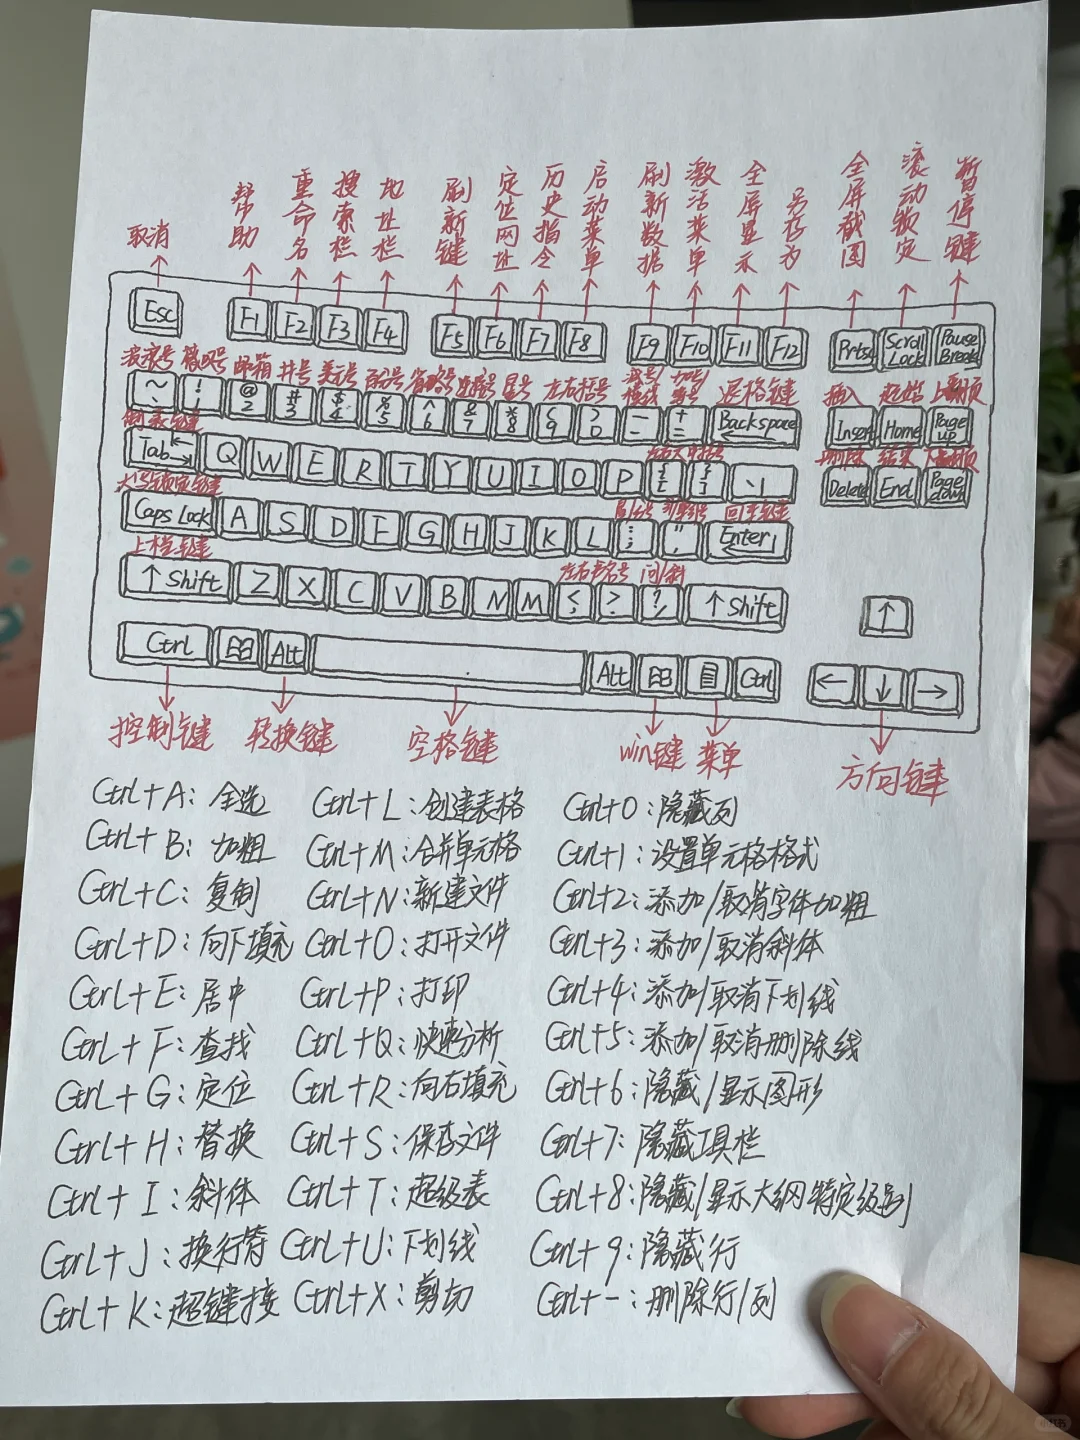 取消 帮助 重命名 搜索栏 地址栏 刷新键 定位网址 历史指令 启动菜单 刷新数据 激活菜单 全屏显示 另存为 全屏截图 滚动锁定 暂停键
Esc F1 F2 F3 F4 F5 F6 F7 F8 F9 F10 F11 F12 Prtsc Scroll Lock Pause Break
波浪号 邮箱 井号 美元号 百分号 省略号 星号 左右括号 加号/ 退格键 插入 起始 上翻页
~ 、 ! 1 @ 2 # 3 $ 4 % 5 ^ 6 & 7 * 8 ( 9 ) 0 — - + = Backspace Insert Home Page up
制表键 删除 结束 下翻页
Tab Q W E R T Y U I O P { [ } ] 、 | Delete End Page down
大写锁定键 回车键
Caps Lock A S D F G H J K L : ; " ' Enter
上档键 左右书名号 问/斜
↑ Shift Z X C V B N M < , > . ? / ↑ Shift ↑
Ctrl Alt Alt Ctrl ← ↓ →
控制键 转换键 空格键 win键 菜单 方向键
Ctrl+A: 全选 Ctrl+L: 创建表格 Ctrl+0: 隐藏列
Ctrl+B: 加粗 Ctrl+M: 合并单元格 Ctrl+1: 设置单元格格式
Ctrl+C: 复制 Ctrl+N: 新建文件 Ctrl+2: 添加/取消字体加粗
Ctrl+D: 向下填充 Ctrl+O: 打开文件 Ctrl+3: 添加/取消斜体
Ctrl+E: 居中 Ctrl+P: 打印 Ctrl+4: 添加/取消下划线
Ctrl+F: 查找 Ctrl+Q: 快速分析 Ctrl+5: 添加/取消删除线
Ctrl+G: 定位 Ctrl+R: 向右填充 Ctrl+6: 隐藏/显示图形
Ctrl+H: 替换 Ctrl+S: 保存文件 Ctrl+7: 隐藏工具栏
Ctrl+I: 斜体 Ctrl+T: 超级表 Ctrl+8: 隐藏/显示大纲特定级别
Ctrl+J: 换行符 Ctrl+U: 下划线 Ctrl+9: 隐藏行
Ctrl+K: 超键接 Ctrl+X: 剪切 Ctrl+-: 删除行/列
小红书